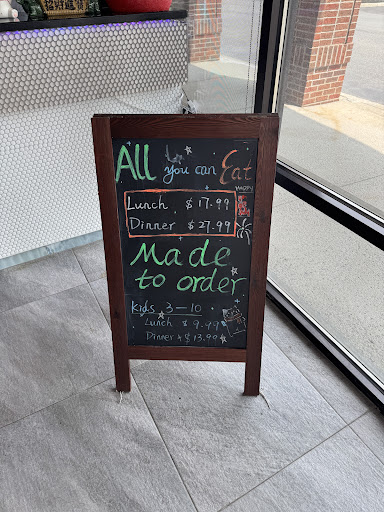 All you can Eat
Lunch $17.99
Dinner $27.99
Made
to order
Kids 3-10
Lunch $9.99
Dinner $13.99